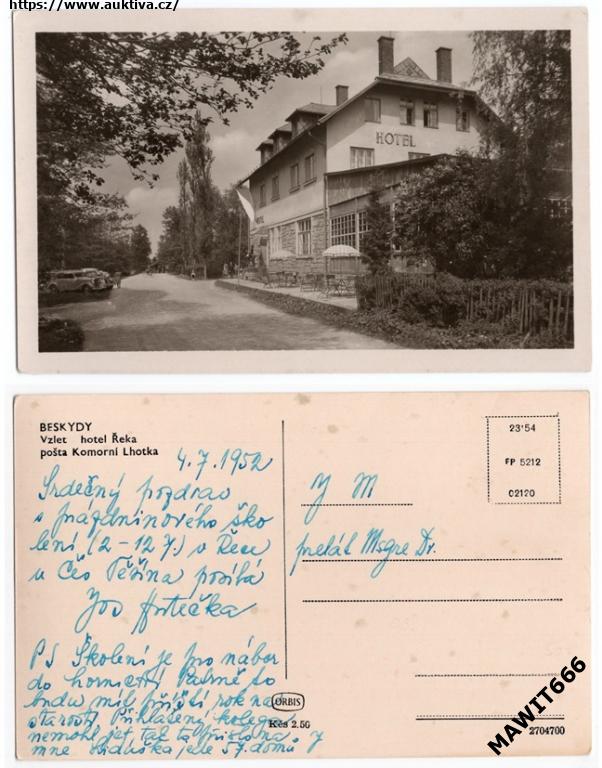 https://www.auktiva.cz/
HOTEL
BESKYDY
Vzlet hotel Řeka
pošta Komorní Lhotka
4.7.1952
Srdečný pozdrav
s prázdninového ško
lení (2-12 7.) v Řece
u Čes Těšína posílá
Jos
PS Školení je pro nábor
do hornictví Patrně to
budu mít příští rok na
starosti Přihlášený kolega
nemohl jet tak to přišlo na
mne jede 5 7. domů
ORBIS
Kčs 2.50
J M
prelát Msgre Dr.
23'54
FP 5212
02120
2704700
MAWIT666